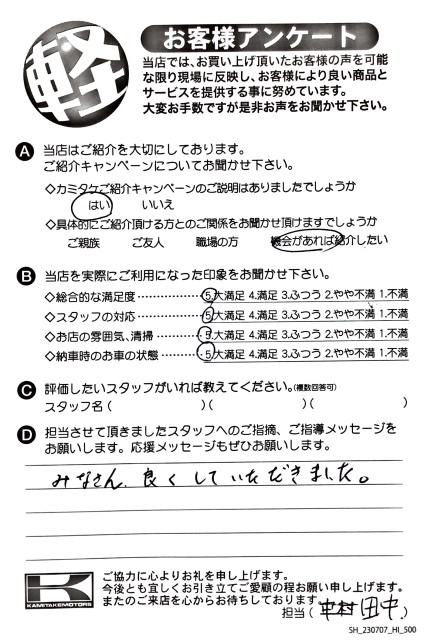 軽
お客様アンケート
当店では、お買い上げ頂いたお客様の声を可能
な限り現場に反映し、お客様により良い商品と
サービスを提供する事に努めています。
大変お手数ですが是非お声をお聞かせ下さい。
A 当店はご紹介を大切にしております。
ご紹介キャンペーンについてお聞かせ下さい。
◇カミタケご紹介キャンペーンのご説明はありましたでしょうか
はい いいえ
◇具体的にご紹介頂ける方とのご関係をお聞かせ頂けますでしょうか
ご親族 ご友人 職場の方 機会があれば紹介したい
B 当店を実際にご利用になった印象をお聞かせ下さい。
◇総合的な満足度 ‥‥‥‥‥ 5.大満足 4.満足 3.ふつう 2.やや不満 1.不満
◇スタッフの対応 ‥‥‥‥‥ 5.大満足 4.満足 3.ふつう 2.やや不満 1.不満
◇お店の雰囲気、清掃 ‥‥‥ 5.大満足 4.満足 3.ふつう 2.やや不満 1.不満
◇納車時のお車の状態 ‥‥‥ 5.大満足 4.満足 3.ふつう 2.やや不満 1.不満
C 評価したいスタッフがいれば教えてください。(複数回答可)
スタッフ名 ( )( )( )
D 担当させて頂きましたスタッフへのご指摘、ご指導メッセージを
お願いします。応援メッセージもぜひお願いします。
みなさん、良くしていただきました。
K
KAMITAKEMOTORS
ご協力に心よりお礼を申し上げます。
今後とも宜しくお引き立てご愛顧の程お願い申し上げます。
またのご来店を心からお待ちしております。
担当 ( 中村 田中 )
SH_230707_HI_500